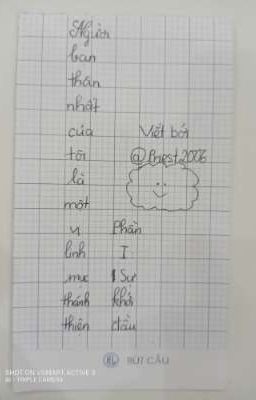 Người
bạn
thân
nhất
của
tôi
là
một
vị
linh
mục
thánh
thiện
Viết bởi
@Priest2006
Phần
I
Sự
khởi
đầu
BÚT CÂU
SHOT ON VSMART ACTIVE 3
AI - TRIPLE CAMERA